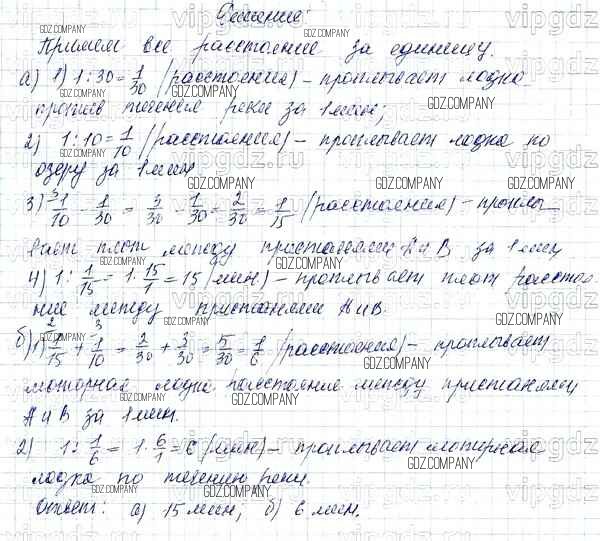 Решение:
Примем все расстояние за единицу.
а) 1) 1:30 = 1/30 (расстояния) – проплывает лодка
против течения реки за 1 мин;
2) 1:10 = 1/10 (расстояния) – проплывает лодка по
озеру за 1 мин
3) 1/10 - 1/30 = 3/30 - 1/30 = 2/30 = 1/15 (расстояния) – проплы-
вает плот между пристанями А и В за 1 мин
4) 1: 1/15 = 1 · 15/1 = 15 (мин) – проплывает плот расстоя-
ние между пристанями А и В.
б) 1) 1/15 + 1/10 = 2/30 + 3/30 = 5/30 = 1/6 (расстояния) – проплывает
моторная лодка расстояние между пристанями
А и В за 1 мин.
2) 1: 1/6 = 1 · 6/1 = 6 (мин) – проплывает моторная
лодка по течению реки.
Ответ: а) 15 мин; б) 6 мин.
GDZ.COMPANY
vipgdz.ru